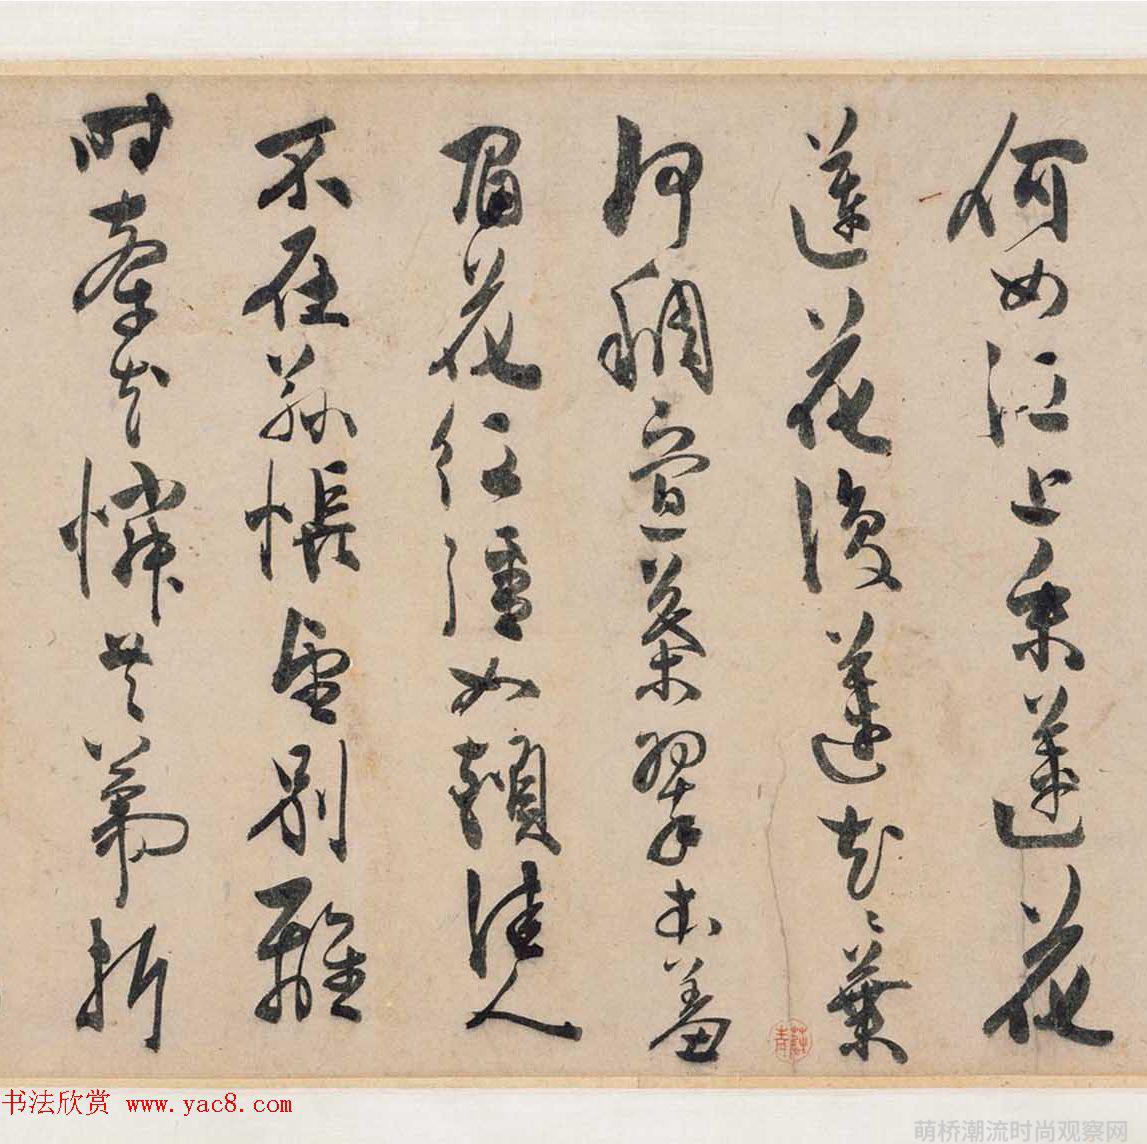 何如江上采蓮花
蓮花復蓮花〻葉
何稠疊葉翠本羞
眉花紅強如頰佳人
不在茲悵望別離
時牽花憐共蒂折
书法欣赏 www.yac8.com
萌桥潮流时尚观察网